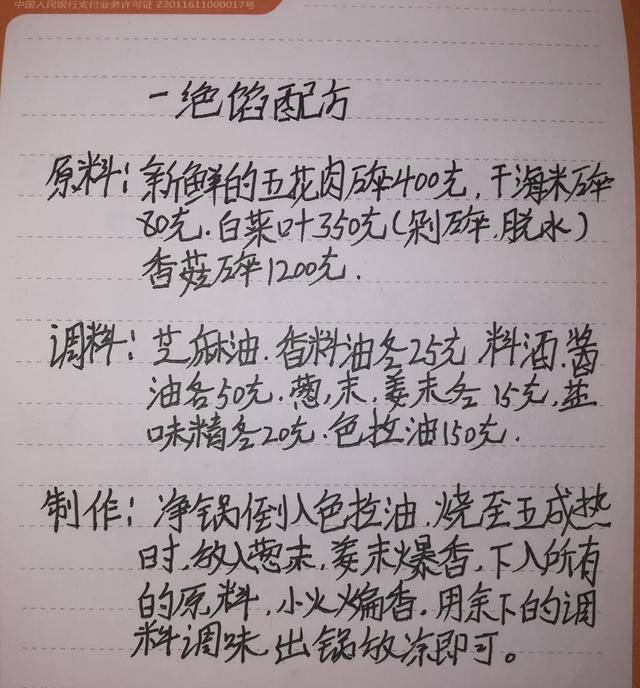 中国人民银行支付业务许可证 Z2011611000017号
一绝馅配方
原料：新鲜的五花肉碎400克，干海米碎
80克．白菜叶350克（剁碎．脱水）
香菇碎1200克．
调料：芝麻油．香料油各25克 料酒．酱
油各50克．葱，末．姜末各15克，盐
味精各20克．色拉油150克．
制作：净锅倒入色拉油．烧至五成热
时，放入葱末，姜末爆香，下入所有
的原料，小火煸香．用余下的调
料调味，出锅放凉即可。